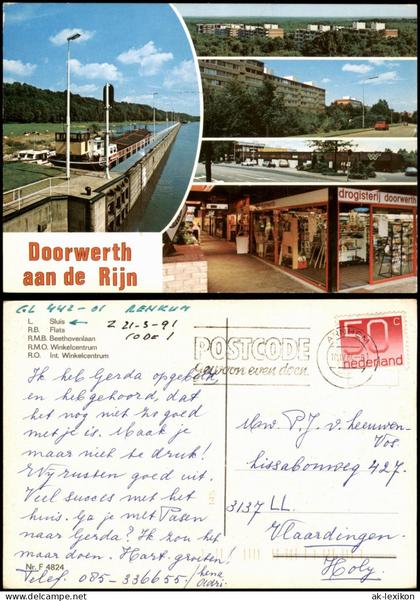 drogisterij doorwerth
Doorwerth
aan de Rijn
GL 442-01 RENKUM
L. Sluis
Z 21-3-91
R.B. Flats
CODE!
R.M.B. Beethovenlaan
R.M.O. Winkelcentrum
R.O. Int. Winkelcentrum
POSTCODE
gewoon even doen.
ARNHEM
50 c
nederland
Ik heb Gerda opgebeld,
en heb gehoord, dat
het nog niet zo goed
met je is. Maak je
maar niet te druk!
Wij rusten goed uit.
Veel succes met het
huis. Ga je met Pasen
naar Gerda? Ik zou het
maar doen. Hart. groeten!
Telef. 085-336655/Lena
Adri.
Mw. P. J. v. Leeuwen-
Vos
Lissabonweg 427.
3137 LL.
Vlaardingen.
Holy.
Nr. F 4824
www.delcampe.net
ak-lexikon